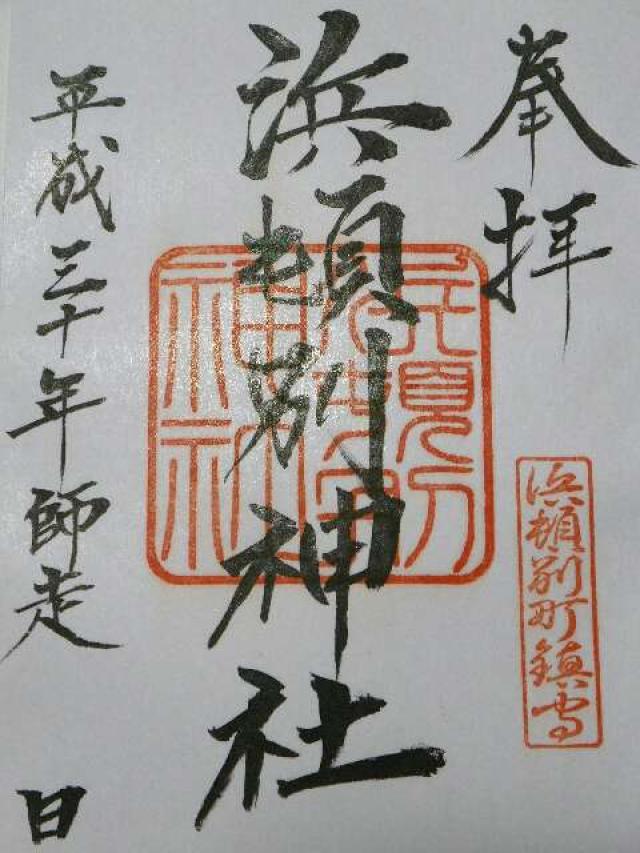 奉拝
浜頓別神社
平成三十年師走 日
浜頓別町鎮守